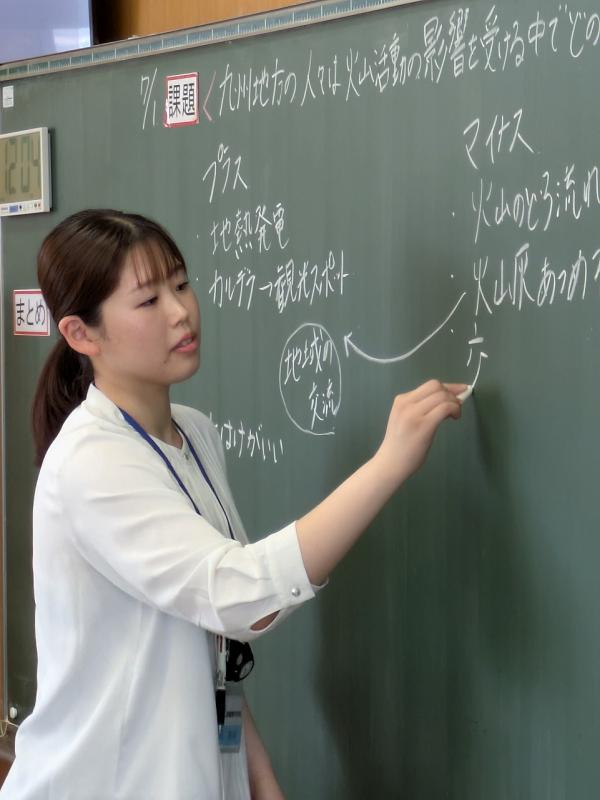 7/1 課題 九州地方の人々は火山活動の影響を受ける中でどの
12:04
プラス
・地熱発電
・カルデラ→観光スポット
まとめ
地域の
交流
はけがいい
マイナス
・火山のどろ流れ
・火山灰あつめ
・六